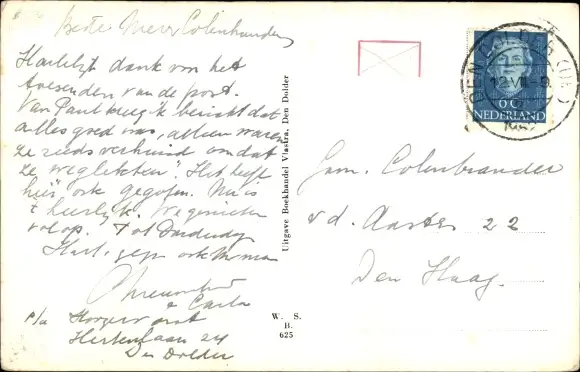 Beste Mevr Colenbrander
Hartelijk dank voor het
toezenden van de post.
Van Paul kreeg 'k bericht dat
alles goed was, alleen waren
ze reeds verhuisd omdat
ze weglekten! Het heeft
hier ook gegoten. Nu is
't heerlijk. We genieten
volop. Tot Donderdag
Hart. gr. ook v.
& Carla
p/a
Hertenlaan 24
Den Dolder
Uitgave Boekhandel Vlastra, Den Dolder
W. S.
B.
625
DEN DOLDER
12 VII
NEDERLAND
Fam. Colenbrander
v. d. Aastr 22
Den Haag.